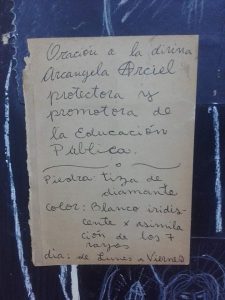 Oracion a la divina
Arcangela Arciel
protectora y
promotora de
la Educación
Pública.
Piedra: tiza de
diamante
color: Blanco iridis-
cente x asimila
ción de los 7
rayos
dia: de Lunes a Viernes